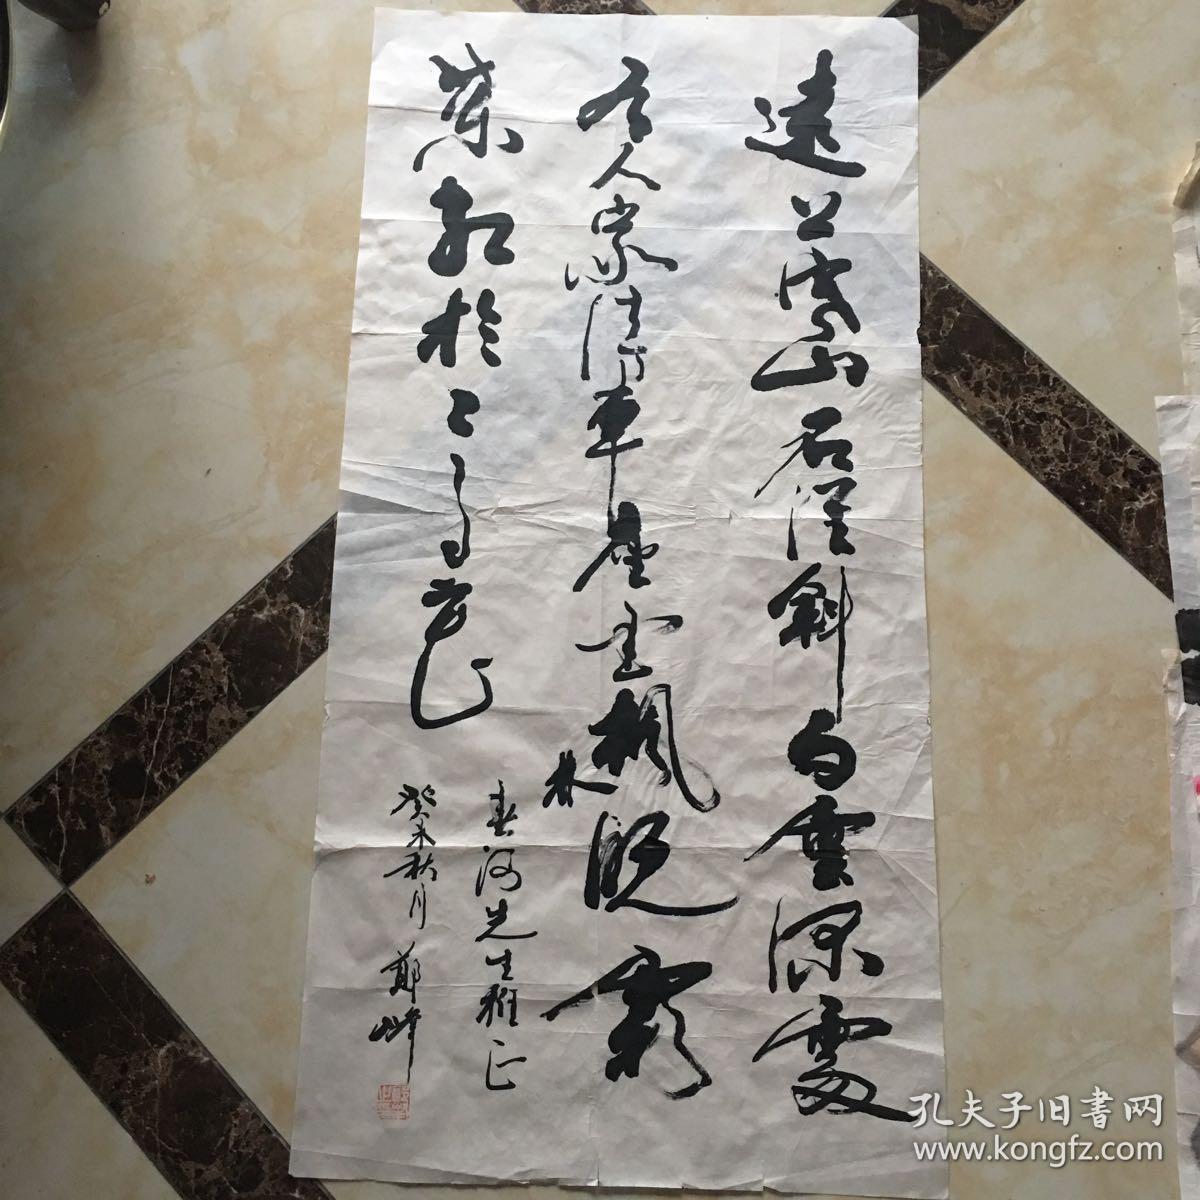 遠上寒山石徑斜白雲深處
有人家停車座愛楓林晚霜
葉紅於二月花
春河先生雅正
癸未秋月 鄭峰
孔夫子旧書网
www.kongfz.com